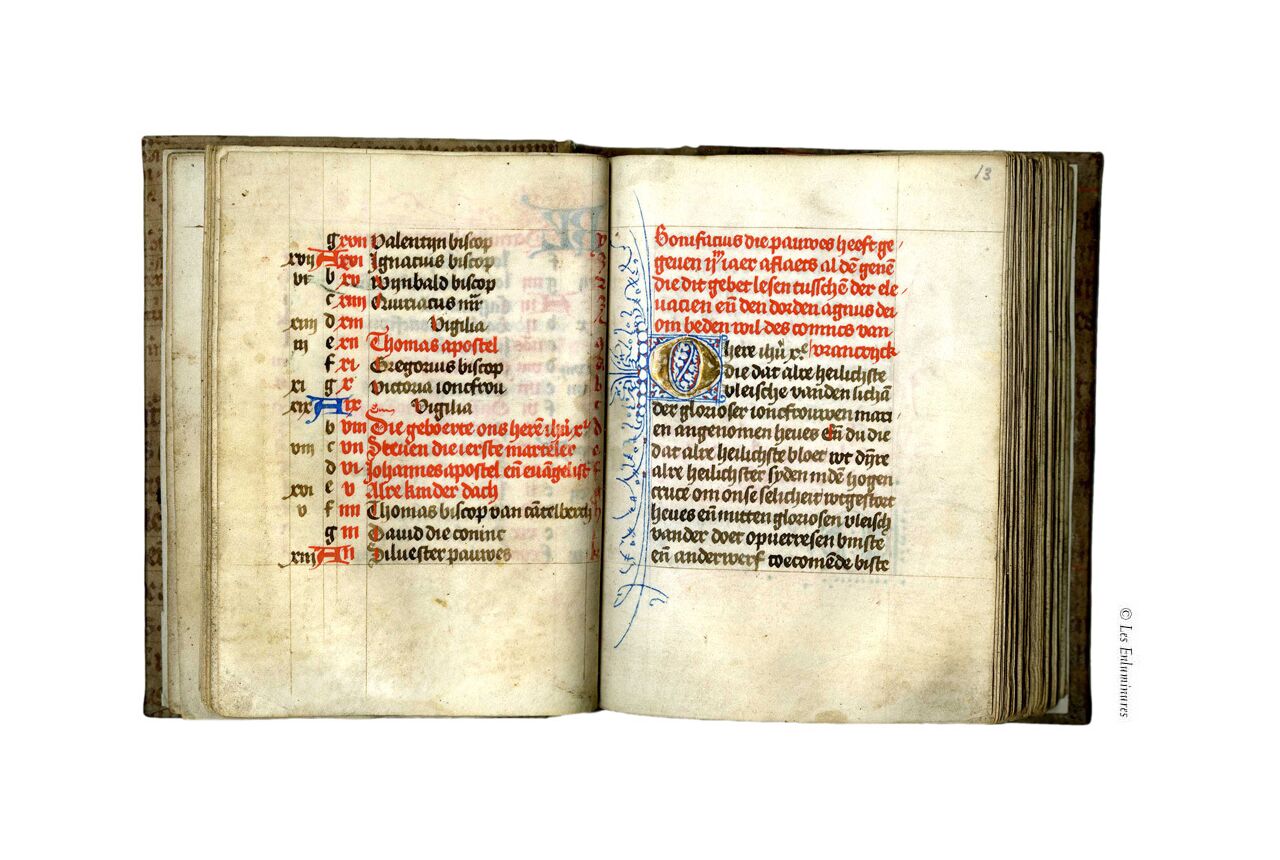 g xvii Valentijn biscop
xvij A xvi Ignatius biscop
vi b xv Wijnbald biscop
c xiiii Quiriacus mr̄
xiiij d xiii Vigilia
iij e xii Thomas apostel
f xi Gregorius biscop
xi g x Victoria ioncfrou
xix A ix Vigilia
b viii Die geboerte ons herē ihū xp̄
viij c vii Steuen die ierste marteler
d vi Johannes apostel eñ euāgelist
xvi e v Alre kinder dach
v f iiii Thomas biscop van cātelberch
g iii Dauid die coninc
xiij A ii Siluester pauwes
13
Bonifacius die pauwes heeft ge
geuen ijᵐ iaer aflaets al dē genē
die dit gebet lesen tusschē der ele
uacien eñ den dorden agnus dei
om beden wil des conincs van
vrancrijck
O here ihū xp̄e
die dat alre heilichste
vleische vanden lichā
der glorioser ioncfrouwen mari
en angenomen heues Eñ du die
dat alre heilichste bloet wt dijre
alre heilichster syden indē hogen
cruce om onse selicheit wtgestort
heues eñ mitten gloriosen vleisch
vander doet op verresen biste
eñ anderwerf toecomēde biste
© Les Enluminures